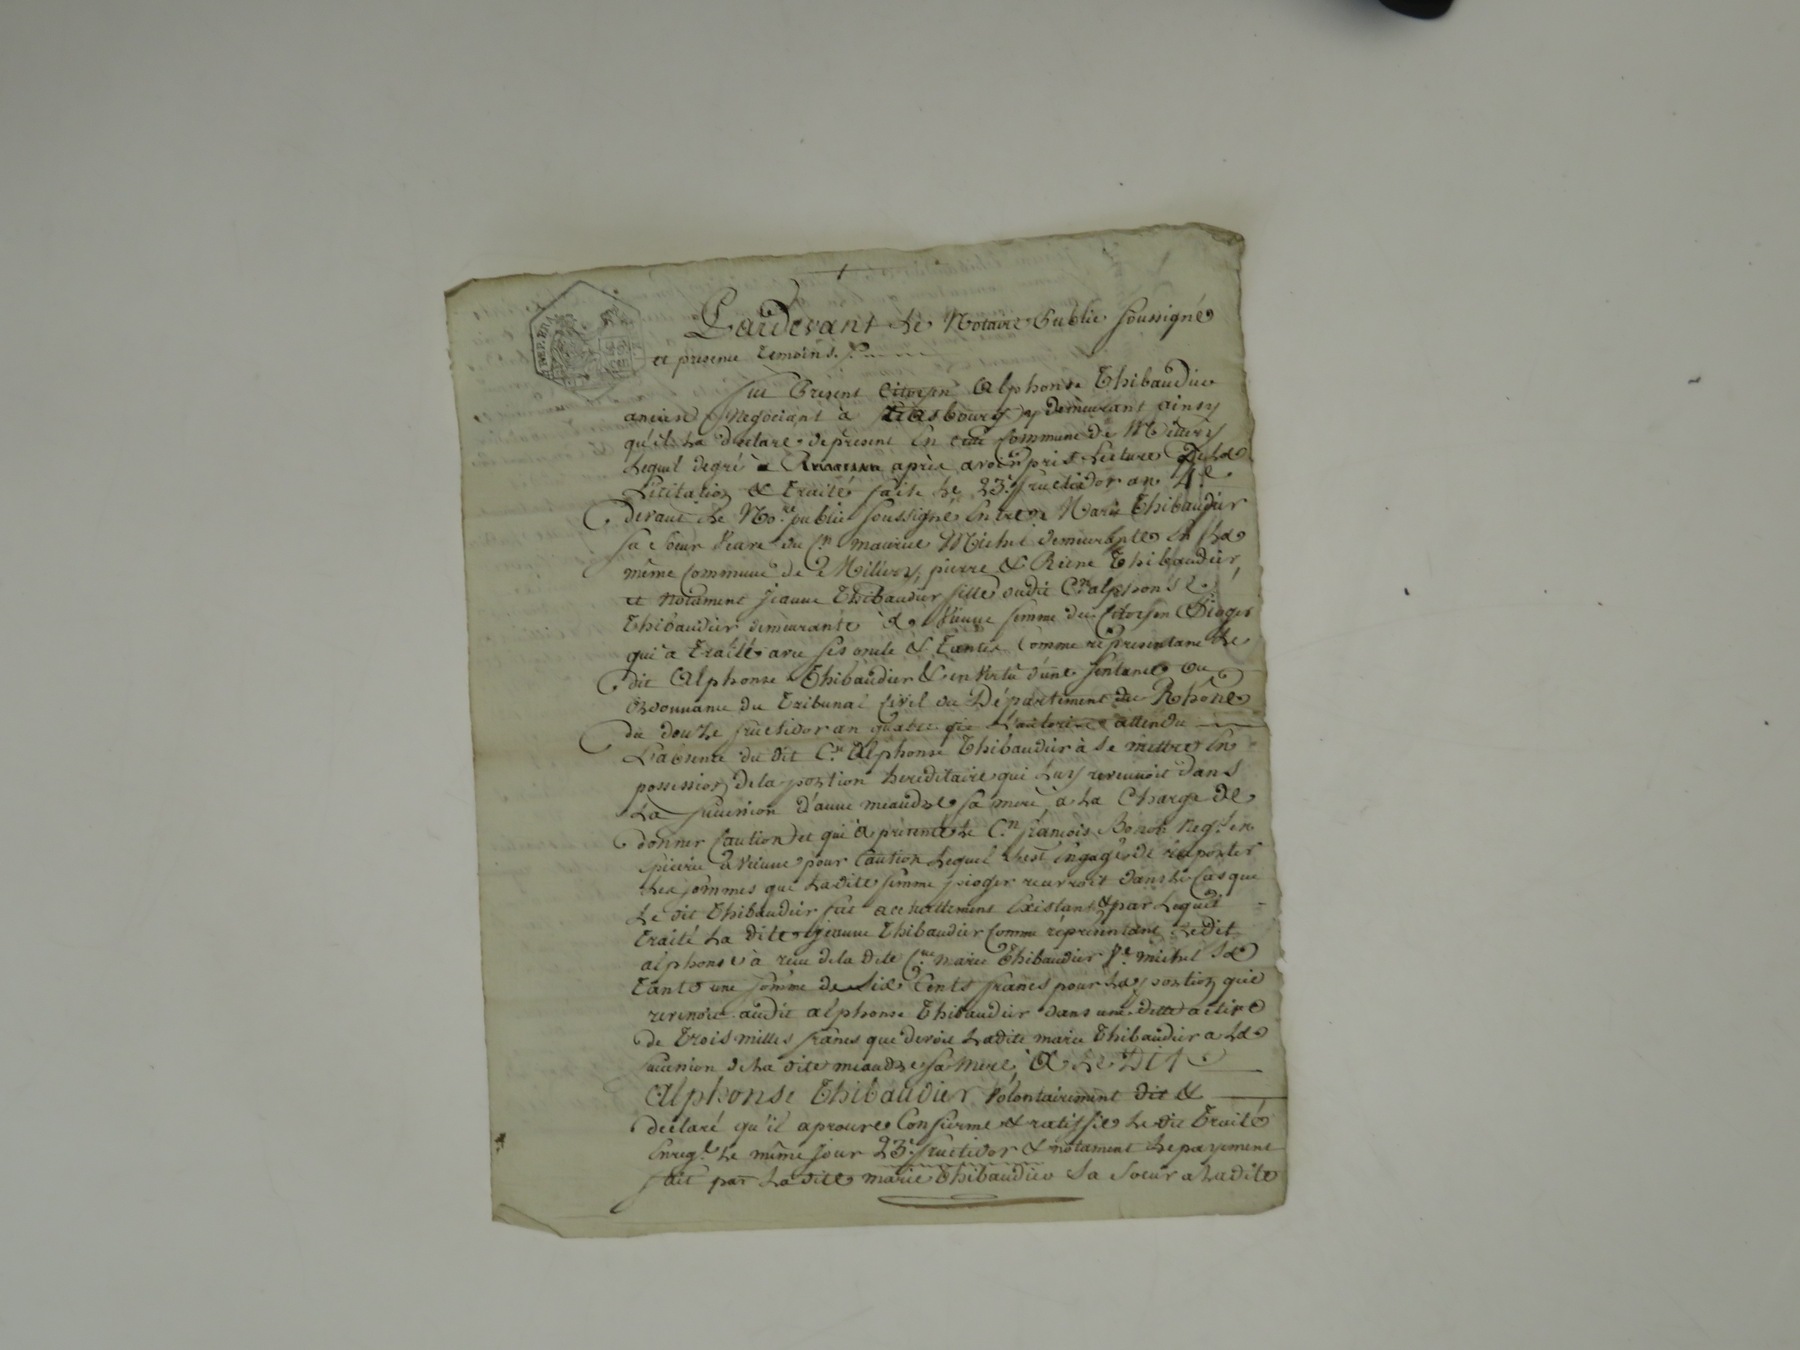 REP. FRA
Pardevant Le Notaire Public soussigné
et presence temoins.
fut Present Citoyen Alphonse Thibaudier
ancien Negociant à Strasbourg y demeurant ainsy
qu'il La declaré, depresent En cette Commune de Millery
Lequel degré à après avoir pris Lecture De La
Licitation & traité faite Le 23. fructidor an 4.e
devant Le No.re public soussigné Entre Marie Thibaudier
sa Soeur veuve du C.n maurice Michel demeurante En La
même Commune de Millery, pierre & Reine Thibaudier,
et notament jeanne Thibaudier fille dudit C.n alphonse
Thibaudier demeurante à Vienne femme du Citoyen Pioger
qui a traité avec ses oncle & Tantes Comme représentant Le
dit Alphonse Thibaudier & en vertu d'une sentance ou
ordonnance du Tribunal Civil du Département du Rhône
du douze fructidor an quatre qui L'autorise attendu
L'absence du dit C.n Alphonse Thibaudier à se mettre En
possession de la portion hereditaire qui Luy revenoit dans
La succession d'anne meandre sa mere, a La Charge de
donner Caution et qui a présenté Le C.n françois Neg.t en
epicerie à vienne pour Caution Lequel s'est Engagé de
Les sommes que Ladite femme pioger recevroit dans Le Cas que
Le dit Thibaudier fut actuellement Existant & par Lequel
traité La dite jeanne Thibaudier Comme réprésentant Ledit
alphonse à reçu de la dite C.ne marie Thibaudier V.e michel sa
tante une somme de six Cents francs pour La portion qui
revenoit audit alphonse Thibaudier dans une dette active
de trois milles francs que devoit Ladite marie Thibaudier a La
succession de La dite meandre sa mere, & Le Dit
Alphonse Thibaudier volontairement dit &
declaré qu'il aprouve Confirme & ratiffie Le dit traité
Enreg.é Le même jour 23. fructidor & notament Le payement
fait par La dite marie Thibaudier sa soeur a Ladite